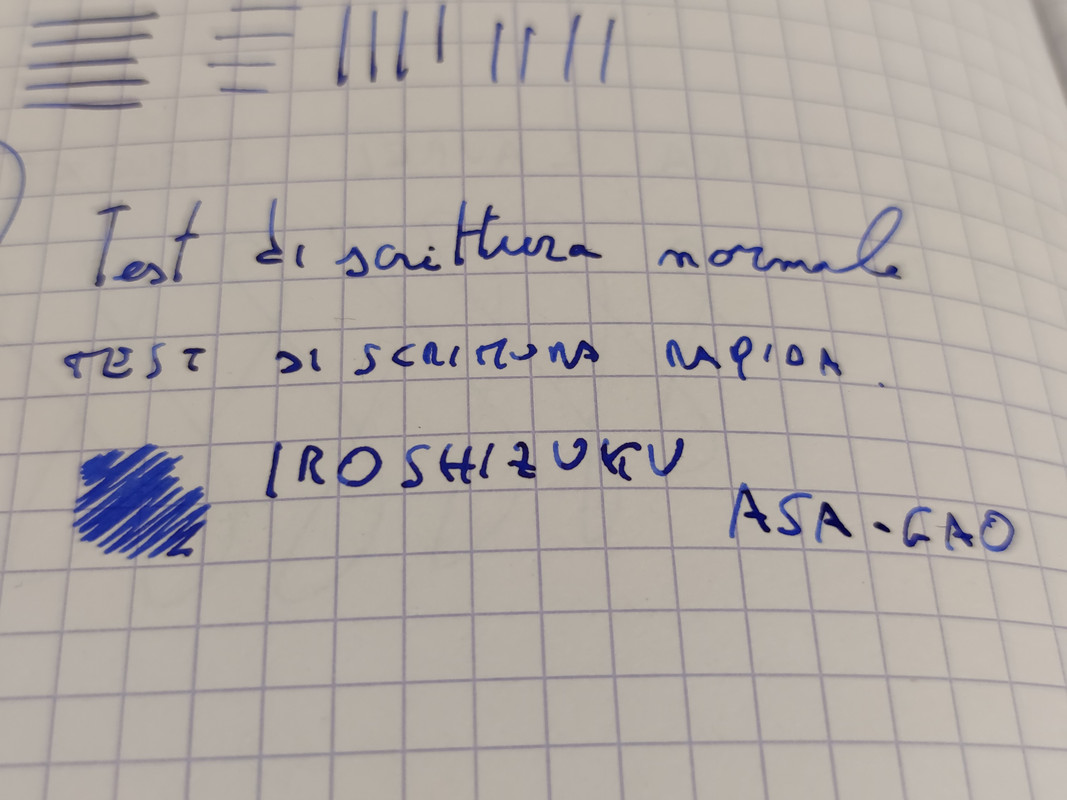 Test di scrittura normale
TEST DI SCRITTURA RAPIDA.
IROSHIZUKU
ASA-GAO